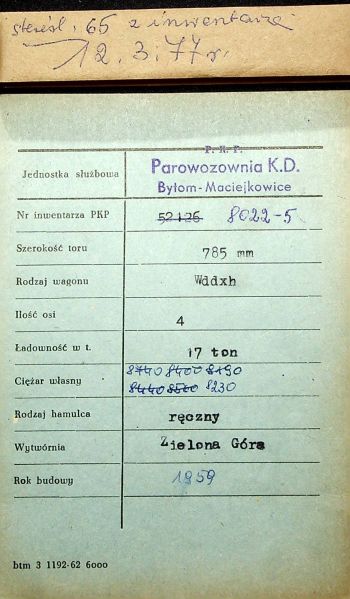 skreśl. 65 z inwentarza
12.3.77r.
P. K. P.
Jednostka służbowa Parowozownia K.D.
Bytom-Maciejkowice
Nr inwentarza PKP 52126 8022-5
Szerokość toru 785 mm
Rodzaj wagonu Wddxh
Ilość osi 4
Ładowność w t. 17 ton
8740 8400 8190
Ciężar własny 8440 8500 8230
Rodzaj hamulca ręczny
Wytwórnia Zielona Góra
Rok budowy 1959
btm 3 1192-62 6000